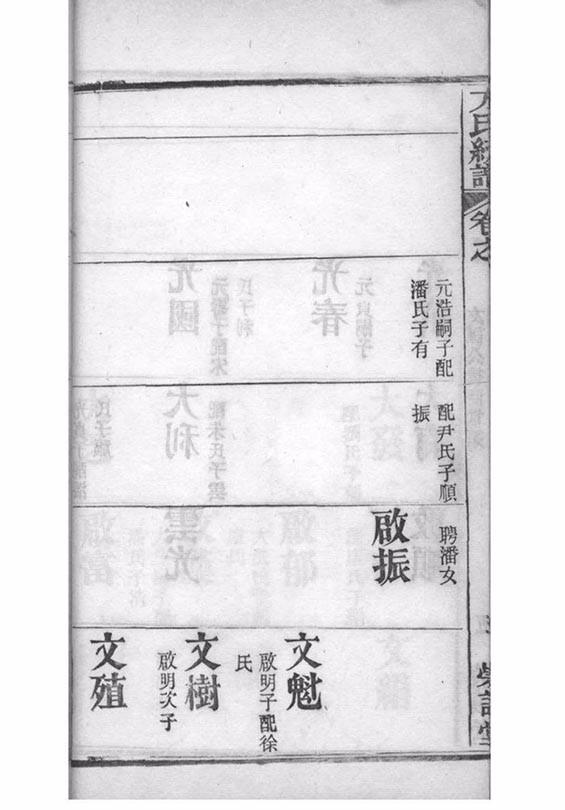 方氏續譜
卷之
元浩嗣子配
潘氏子有
配尹氏子順
振
聘潘女
啟振
文魁
啟明子配徐
氏
文樹
啟明次子
文殖